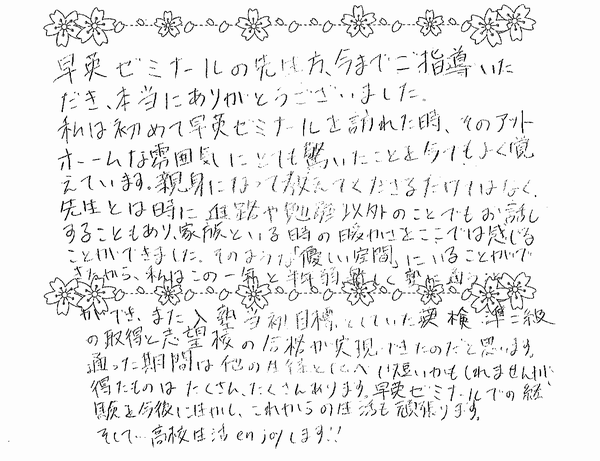 早英ゼミナールの先生方、今までご指導いた
だき、本当にありがとうございました。
私は初めて早英ゼミナールを訪れた時、そのアット
ホームな雰囲気にとても驚いたことを今でもよく覚
えています。親身になって教えてくださるだけではなく、
先生とは時に進路や勉強以外のことでもお話し
することもあり、家族といる時の暖かさをここでは感じる
ことができました。そのような「優しい空間」にいることがで
きたから、私はこの一年と半年弱楽しく塾に通う
ができ、また入塾当初目標としていた英検準二級
の取得と志望校の合格が実現できたのだと思います。
通った期間は他の生徒と比べ短いかもしれませんが
得たものはたくさん、たくさんあります。早英ゼミナールでの経
験を今後に生かし、これからの生活も頑張ります。
そして…高校生活enjoyします!!